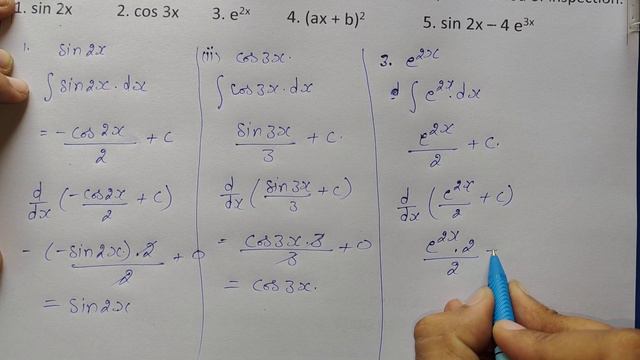 of inspection.
1. sin 2x 2. cos 3x 3. e^{2x} 4. (ax + b)^2 5. sin 2x – 4 e^{3x}
1. sin 2x
∫ sin 2x · dx
= -cos 2x / 2 + c
d/dx (-cos 2x / 2 + c)
- (-sin 2x) · 2 / 2 + 0
= sin 2x
(ii) cos 3x.
∫ cos 3x · dx
sin 3x / 3 + c.
d/dx (sin 3x / 3 + c)
= cos 3x · 3 / 3 + 0
= cos 3x.
3. e^{2x}
∫ e^{2x} · dx
e^{2x} / 2 + c.
d/dx (e^{2x} / 2 + c)
e^{2x} · 2 / 2